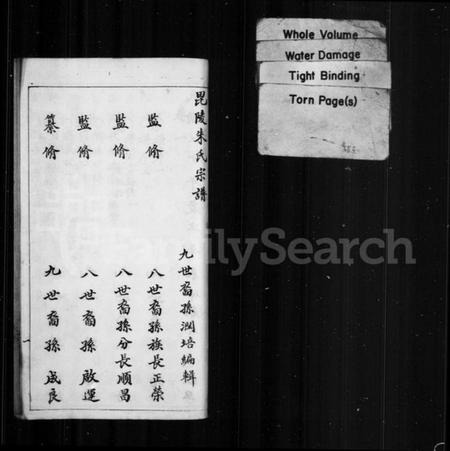 毘陵朱氏宗譜
九世裔孫潤培編輯
監脩 八世裔孫族長正榮
監脩 八世裔孫分長順昌
監脩 八世裔孫啟運
纂脩 九世裔孫成良
Whole Volume
Water Damage
Tight Binding
Torn Page(s)
FamilySearch